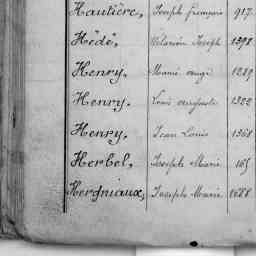 Hautière, Joseph françois 917
Hédé, Hilarion Joseph 1298
Henry, Marie ange 1289
Henry, Louis auguste 1322
Henry, Jean Louis 1368
Herbel, Joseph Marie 165
Hergniaux, Joseph Marie 1688